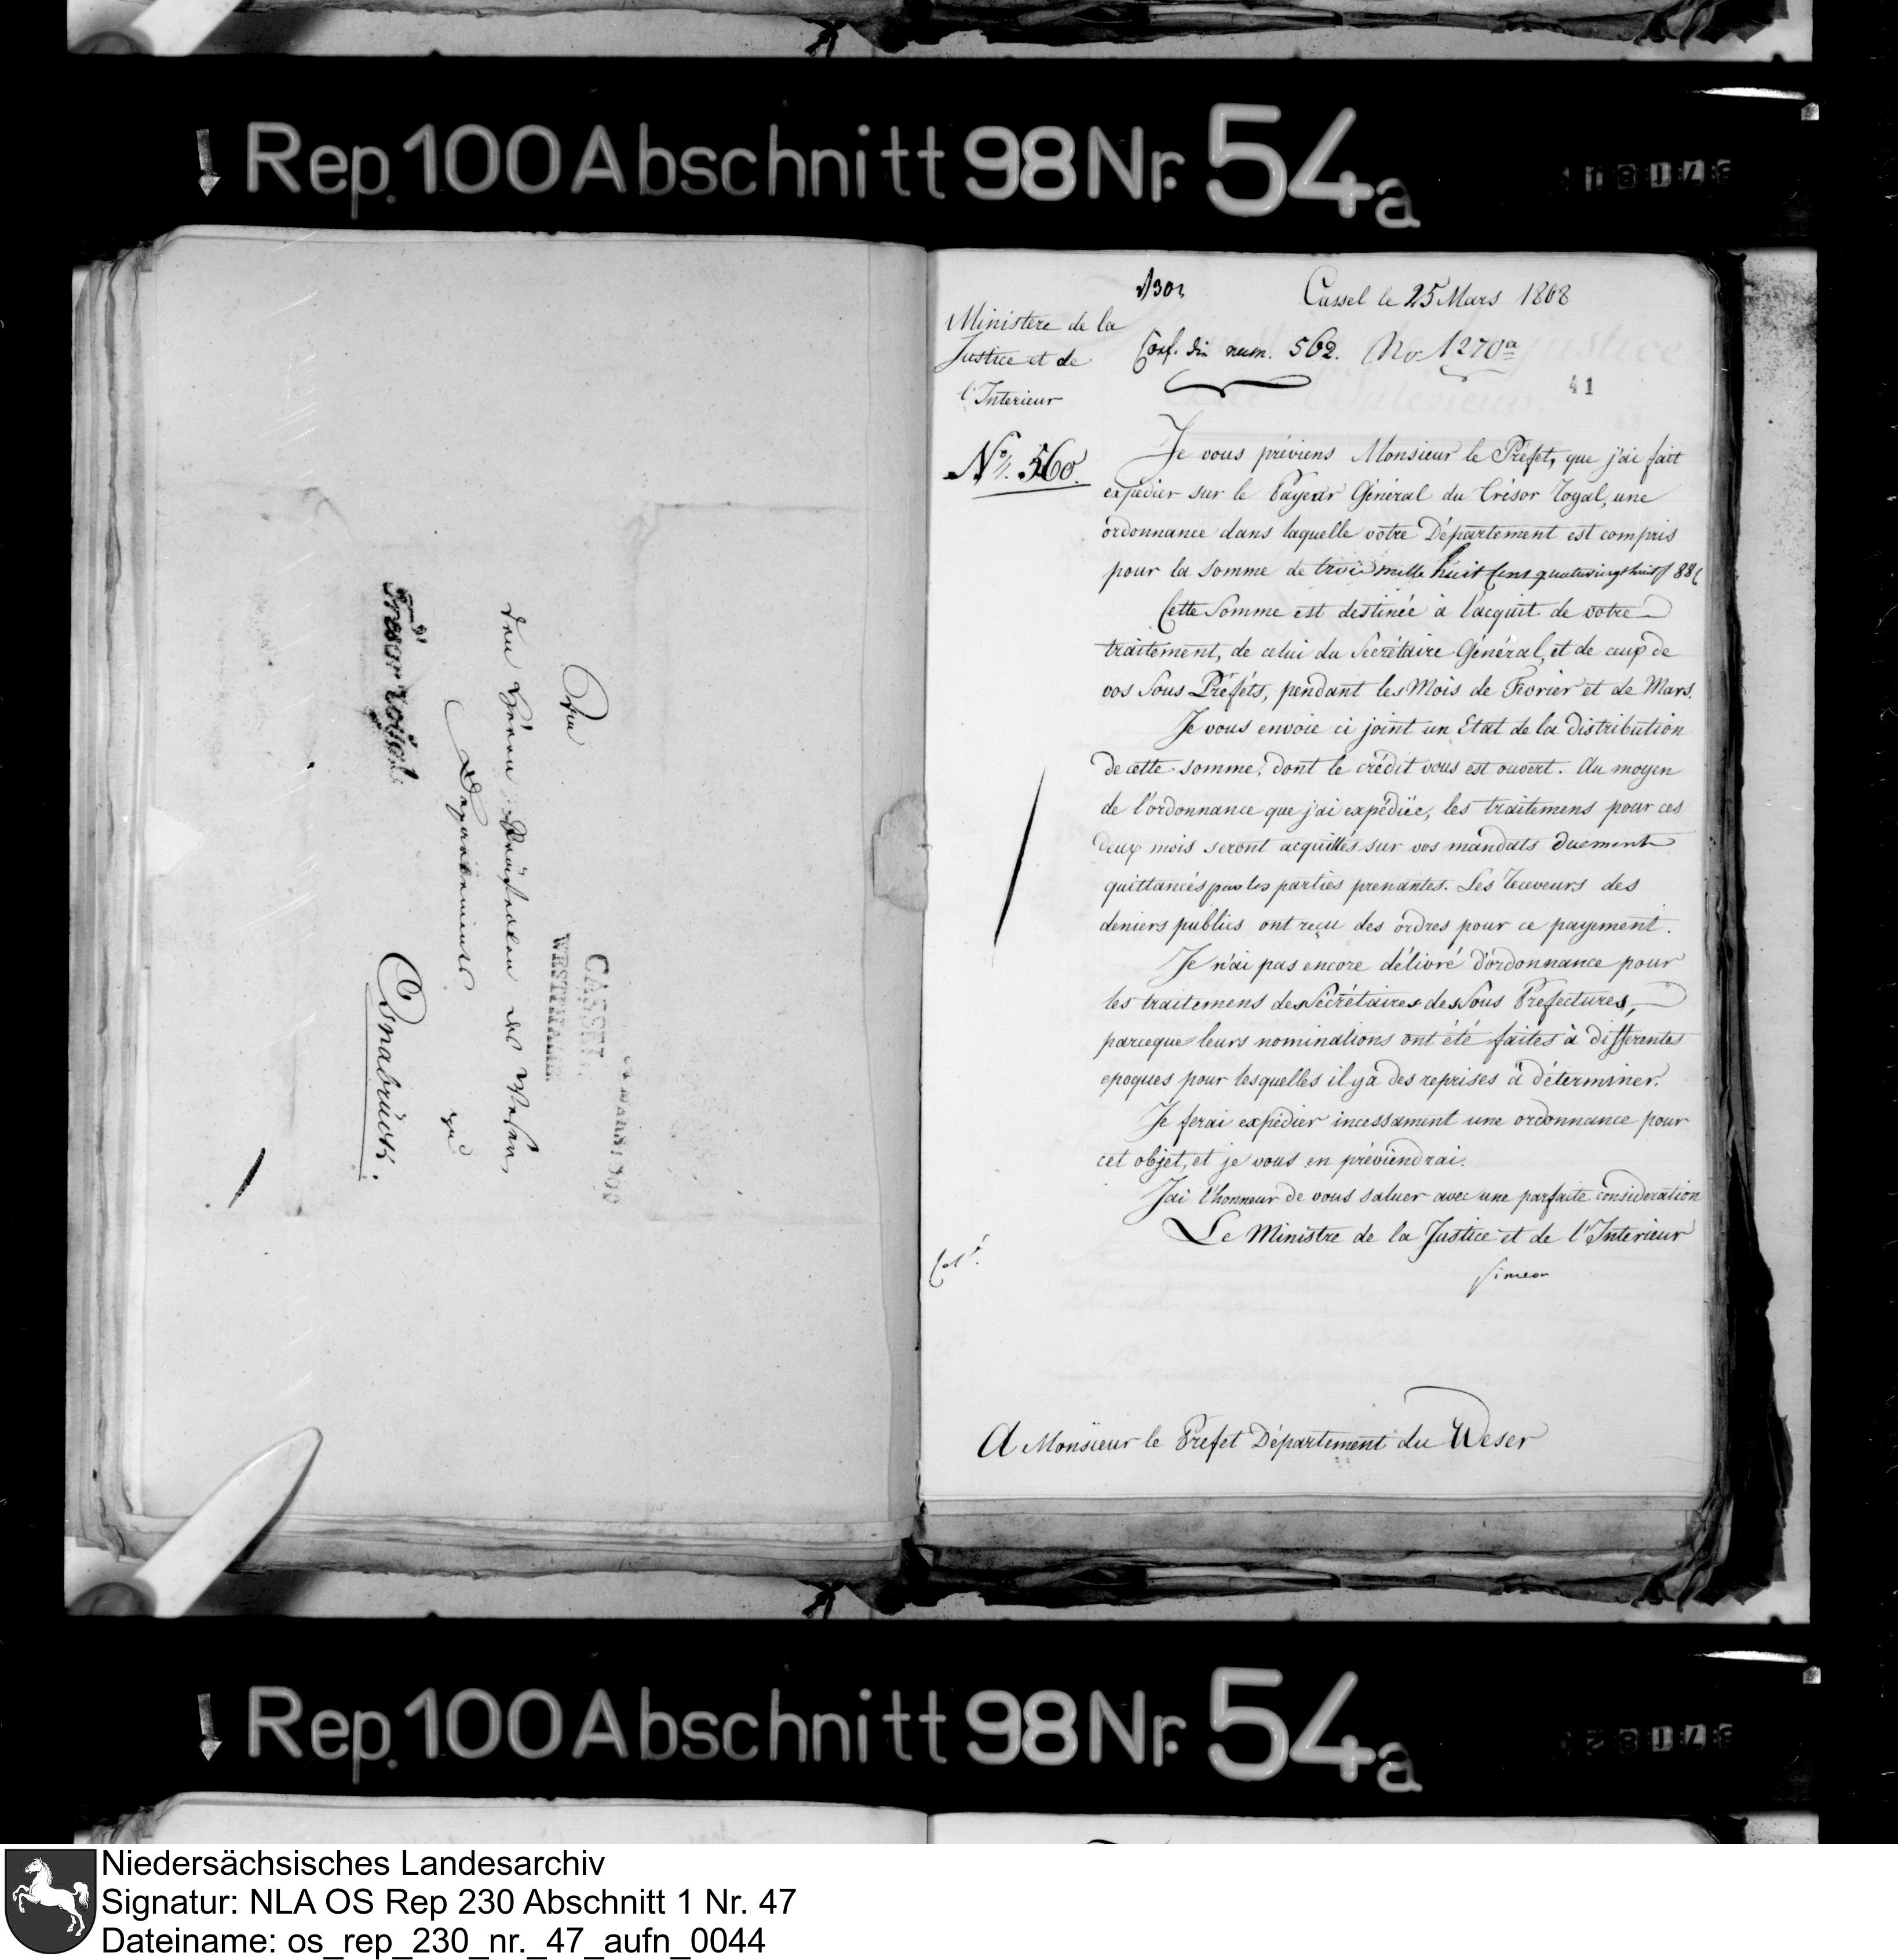 Rep. 100 Abschnitt 98 Nr. 54a
An
den Herrn Präfecten des Weser
Departements
zu
Osnabrück.
CASSEL
WESTPHALIE
Cassel le 25 Mars 1808
Ministere de la
Justice et de
l'Interieur
Conf. din num. 562. No 1270a
41
No. 560.
Je vous préviens Monsieur le Préfet, que j'ai fait
expédier sur le Payeur Général du Trésor Royal, une
ordonnance dans laquelle votre Département est compris
pour la somme de trois mille huit Cens quatrevingt huit f 88 c
Cette Somme est destinée à l'acquit de votre
traitement, de celui du Secrétaire Général, et de ceux de
vos Sous Préféts, pendant les Mois de Fevrier et de Mars.
Je vous envoie ci joint un Etat de la distribution
de cette somme, dont le crédit vous est ouvert. Au moyen
de l'ordonnance que j'ai expédiée, les traitemens pour ces
deux mois seront acquittés sur vos mandats duement
quittancés par les parties prenantes. Les Receveurs des
deniers publics ont reçu des ordres pour ce payement.
Je n'ai pas encore délivré d'ordonnance pour
les traitemens des Sécrétaires des Sous Prefectures,
parceque leurs nominations ont été faites à differentes
epoques pour lesquelles il y a des reprises à déterminer.
Je ferai expédier incessament une ordonnance pour
cet objet, et je vous en préviendrai.
J'ai l'honneur de vous saluer avec une parfaite consideration
Le Ministre de la Justice et de l'Interieur
Simeon
A Monsieur le Prefet Département du Weser
Rep. 100 Abschnitt 98 Nr. 54a
Niedersächsisches Landesarchiv
Signatur: NLA OS Rep 230 Abschnitt 1 Nr. 47
Dateiname: os_rep_230_nr._47_aufn_0044